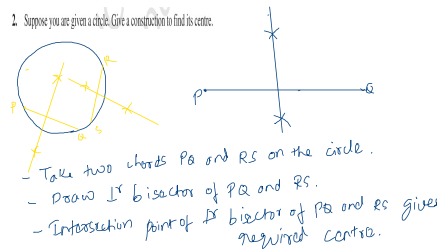 2. Suppose you are given a circle. Give a construction to find its centre.
P
R
Q
S
P
Q
- Take two chords PQ and RS on the circle.
- Draw ⊥r bisector of PQ and RS.
- Intersection point of ⊥r bisector of PQ and RS gives
required centre.